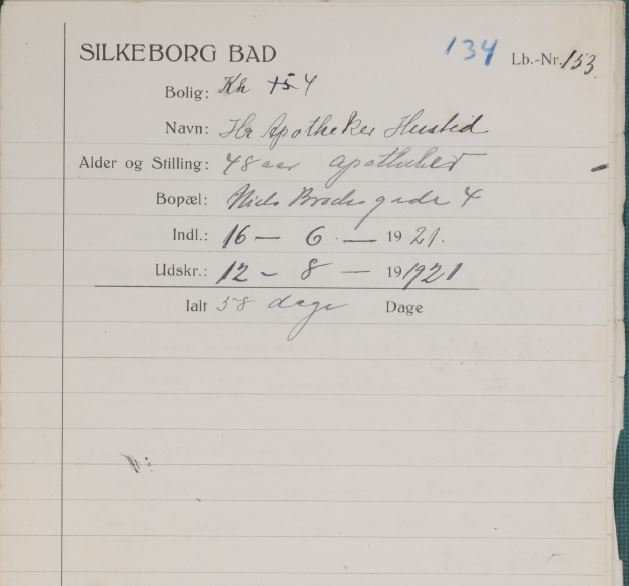 SILKEBORG BAD 134 Lb.-Nr. 153.
Bolig: Kh 154
Navn: Hr Apotheker Husted
Alder og Stilling: 48 aar apotheker
Bopæl: Niels Brocks gade 4
Indl.: 16 — 6 — 1921.
Udskr.: 12 — 8 — 191921
Ialt 58 dage Dage